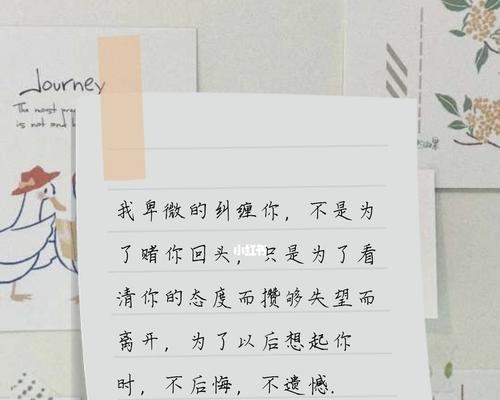 Journey
The most
is not and
我卑微的纠缠你，不是为
了赌你回头，只是为了看
小红书
清你的态度而攒够失望而
离开，为了以后想起你
时，不后悔，不遗憾.